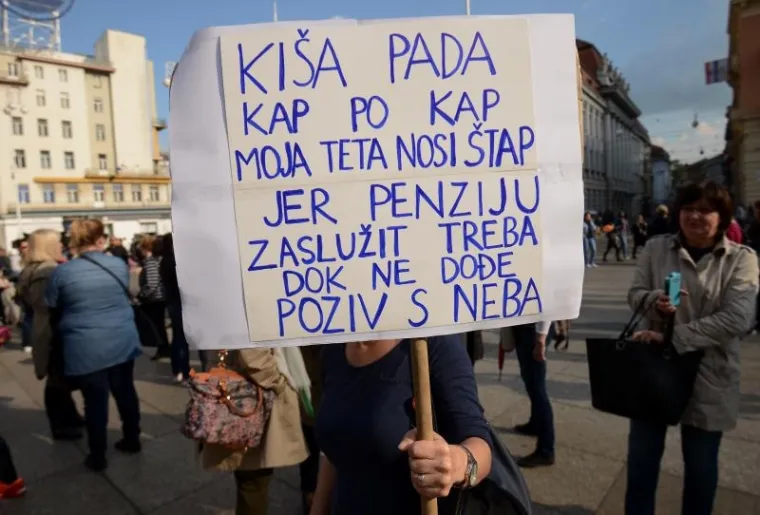 KIŠA PADA
KAP PO KAP
MOJA TETA NOSI ŠTAP
JER PENZIJU
ZASLUŽIT TREBA
DOK NE DOĐE
POZIV S NEBA